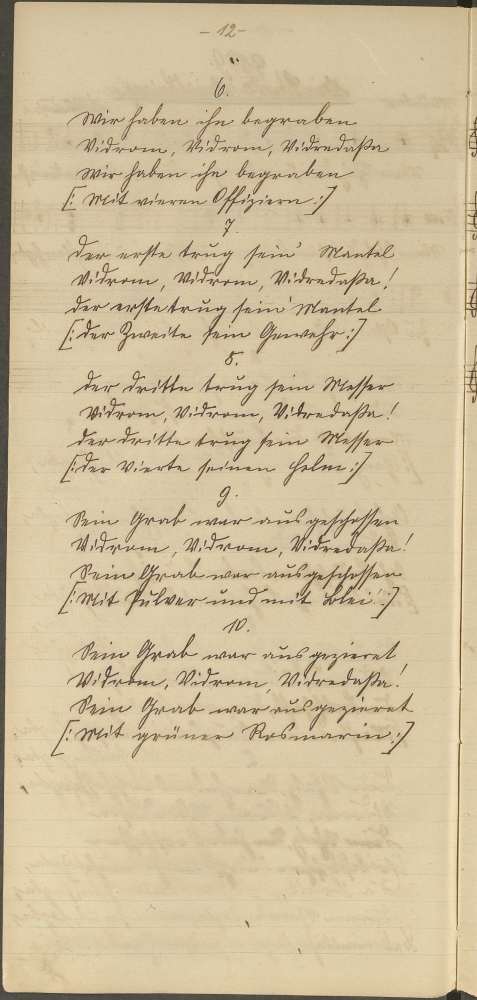 - 12 -
6.
Wir haben ihn begraben
Vidrom, Vidrom, Vidredaßa
Wir haben ihn begraben
[: Mit vieren Offiziern :]
7.
Der erste trug sein' Mantel
Vidrom, Vidrom, Vidredaßa!
Der erste trug sein' Mantel
[: Der Zweite sein Gewehr :]
8.
Der dritte trug sein Messer
Vidrom, Vidrom, Vidredaßa!
Der dritte trug sein Messer
[: Der Vierte seinen Helm :]
9.
Sein Grab war ausgeschossen
Vidrom, Vidrom, Vidredaßa!
Sein Grab war ausgeschossen
[: Mit Pulver und mit Blei :]
10.
Sein Grab war ausgezieret
Vidrom, Vidrom, Vidredaßa!
Sein Grab war ausgezieret
[: Mit grüner Rosmarin :]